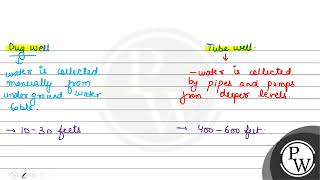 Dug well
water is collected
manually from
underground water
table.
→ 10-30 feets
Tube well.
- water is collected
by pipes and pumps
from deeper levels.
→ 400-600 feet.
PW
PW